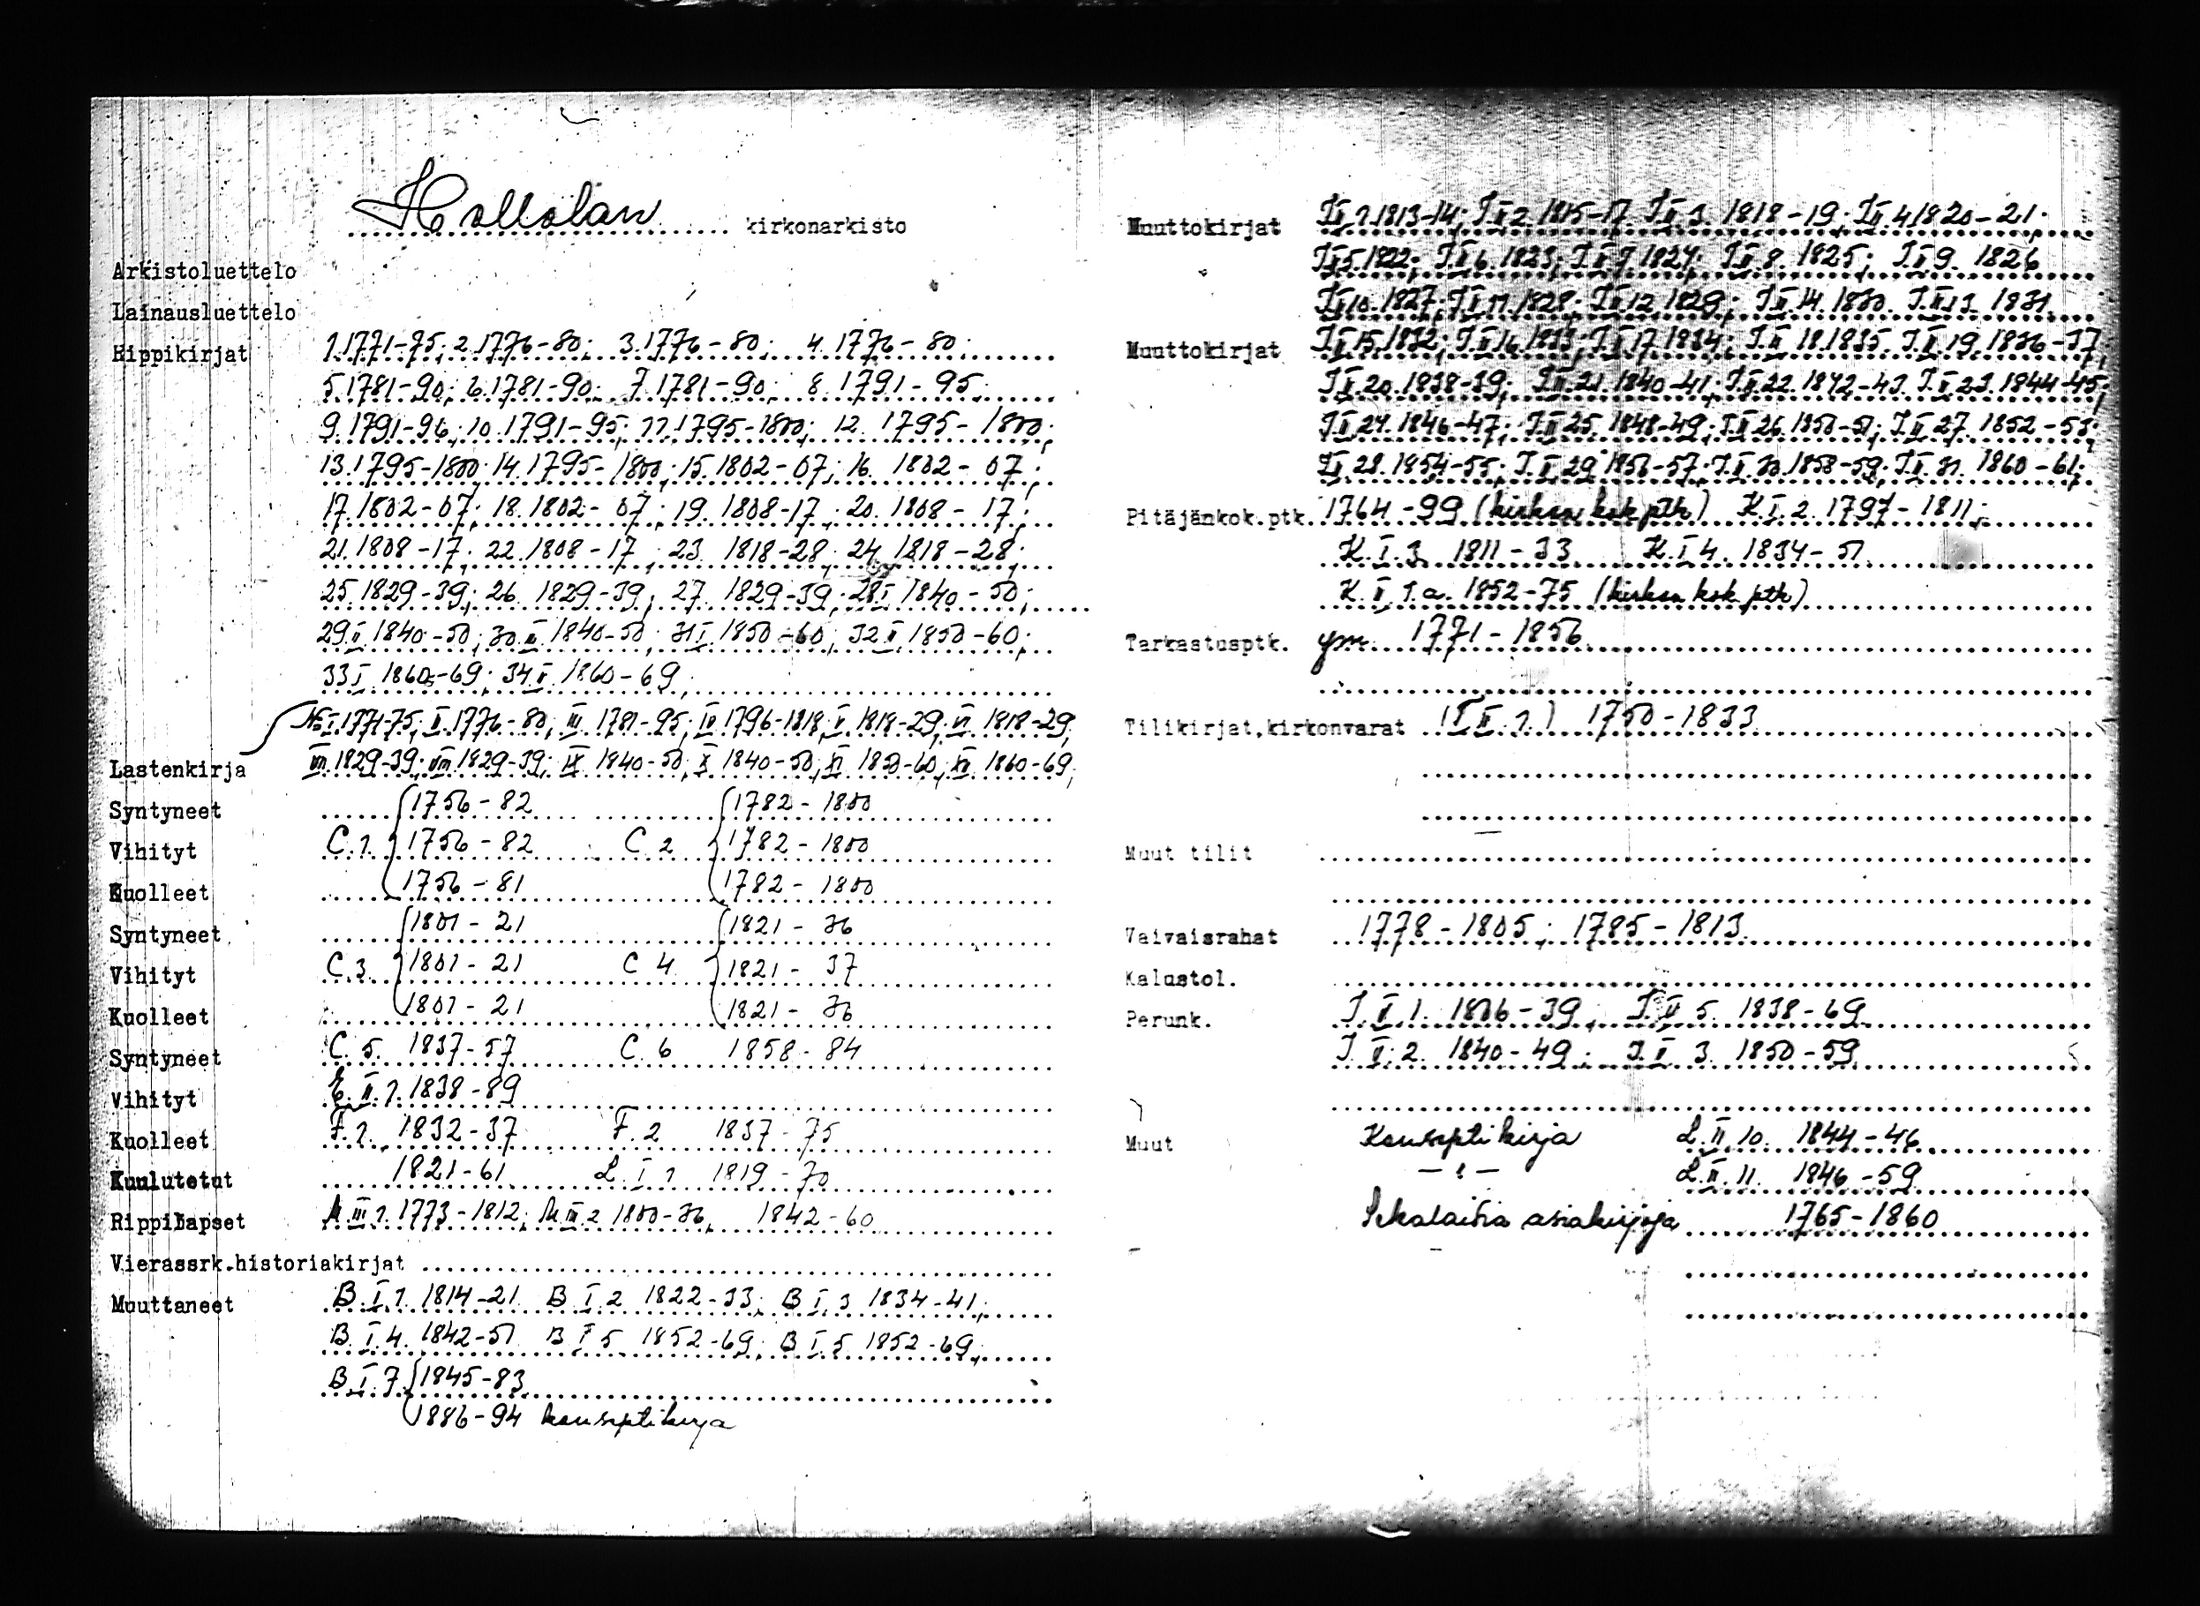 Hollolan kirkonarkisto
Arkistoluettelo
Lainausluettelo
Rippikirjat 1.1771-75; 2.1776-80; 3.1776-80; 4.1776-80;
5.1781-90; 6.1781-90; 7.1781-90; 8.1791-95;
9.1791-96; 10.1791-95; 11.1795-1800; 12. 1795-1800;
13.1795-1800; 14.1795-1800; 15.1802-07; 16. 1802-07;
17.1802-07; 18.1802-07; 19.1808-17; 20.1808-17;
21.1808-17; 22.1808-17; 23. 1818-28; 24. 1818-28;
25.1829-39; 26. 1829-39; 27. 1829-39; 28 I 1840-50;
29 II 1840-50; 30 III 1840-50; 31 I 1850-60; 32 II 1850-60;
33 I. 1860-69; 34 II 1860-69;
No I 1771-75; II 1776-80; III 1781-95; IV 1796-1818; V 1818-29; VI 1818-29;
Lastenkirja VII 1829-39; VIII 1829-39; IX 1840-50; X 1840-50; XI 1850-60; XII 1860-69;
Syntyneet 1756-82 1782-1800
Vihityt C.1. 1756-82 C 2 1782-1800
Kuolleet 1756-81 1782-1800
Syntyneet 1801-21 1821-36
Vihityt C.3. 1801-21 C 4 1821-37
Kuolleet 1801-21 1821-36
Syntyneet C. 5. 1837-57 C. 6 1858-84
Vihityt E. II. 1. 1838-89
Kuolleet F. 1. 1832-37 F. 2 1837-75
Kuulutetut 1821-61 L. I 1 1819-70
Rippilapset M III 1. 1773-1812; M III 2 1800-36; 1842-60
Vierassrk.historiakirjat
Muuttaneet B. I. 1 1814-21 B I 2 1822-33; B I. 3 1834-41;
B. I. 4. 1842-51 B I 5 1852-69; B I. 5 1852-69;
B. I. 7 1845-83
1886-94 konseptikirja
Muuttokirjat I II 1.1813-14; I II 2 1815-17 I II 3. 1818-19; I II 4 1820-21;
I II 5.1822; I II 6 1823; I II 7 1824; I II 8. 1825; I II 9. 1826
I II 10.1827; I II 11.1828; I II 12 1829; I II 14. 1830. I II 13. 1831.
Muuttokirjat I II 15.1832; I II 16 1833; I II 17 1834; I II 18.1835. I II 19. 1836-37;
I II 20. 1838-39; I II 21. 1840-41; I II 22. 1842-43. I II 23. 1844-45;
I II 24. 1846-47; I II 25. 1848-49; I II 26. 1850-51; I II 27. 1852-53;
I II 28. 1854-55; I II 29 1856-57; I II 30. 1858-59; I II 31. 1860-61;
Pitäjänkok.ptk. 1764-99 (kirkon kok ptk) K. I. 2. 1797-1811;
K. I. 3. 1811-33 K. I 4. 1834-51
K. II 1.a. 1852-75 (kirkon kok ptk)
Tarkastusptk. ym. 1771-1856
Tilikirjat,kirkonvarat 1750-1833
Muut tilit
Vaivaisrahat 1778-1805; 1785-1813
Kalustol.
Perunk. J. II 1. 1806-39; J. II 5. 1838-69
J. II. 2. 1840-49; J. II 3. 1850-59
Muut Konseptikirja L. II. 10. 1844-46
-"- L. II. 11. 1846-59
Sekalaisia asiakirjoja 1765-1860